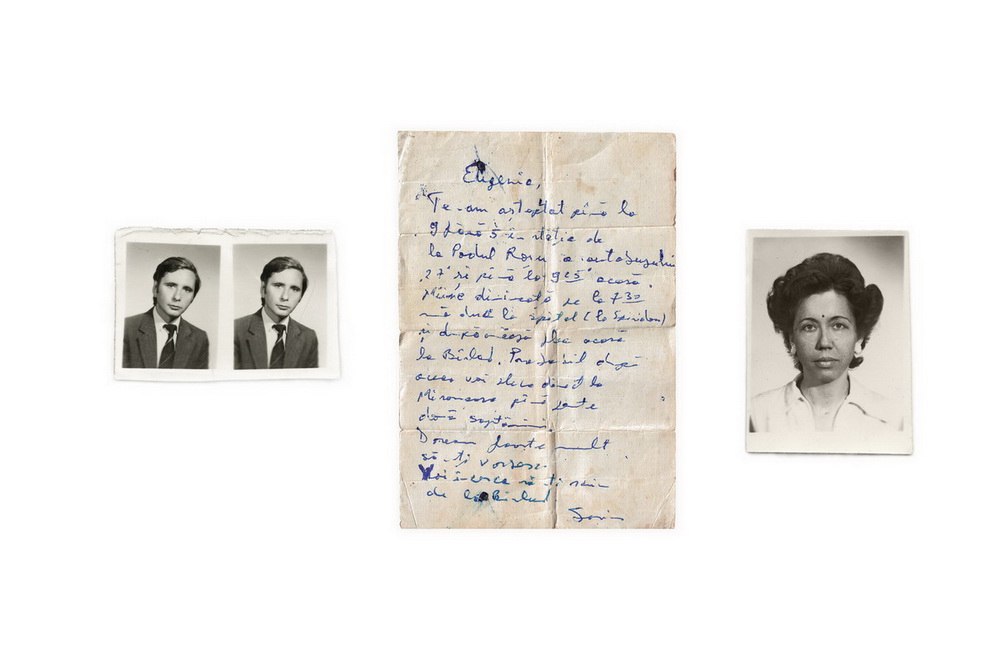 Eugenia,
Te-am așteptat pînă la
9 în stație de
la Podul Roșu a autobuzului
27 și pînă la 9 25 acasă.
Mîine dimineață pe la 7 30
mă duc la spital (la Spiridon)
și după-masă plec acasă
la Bîrlad.
voi pleca direct la
Mironeasa peste
două săptămîni.
Doream foarte mult
să-ți vorbesc.
Voi încerca să-ți scriu
de la Bîrlad
Sorin